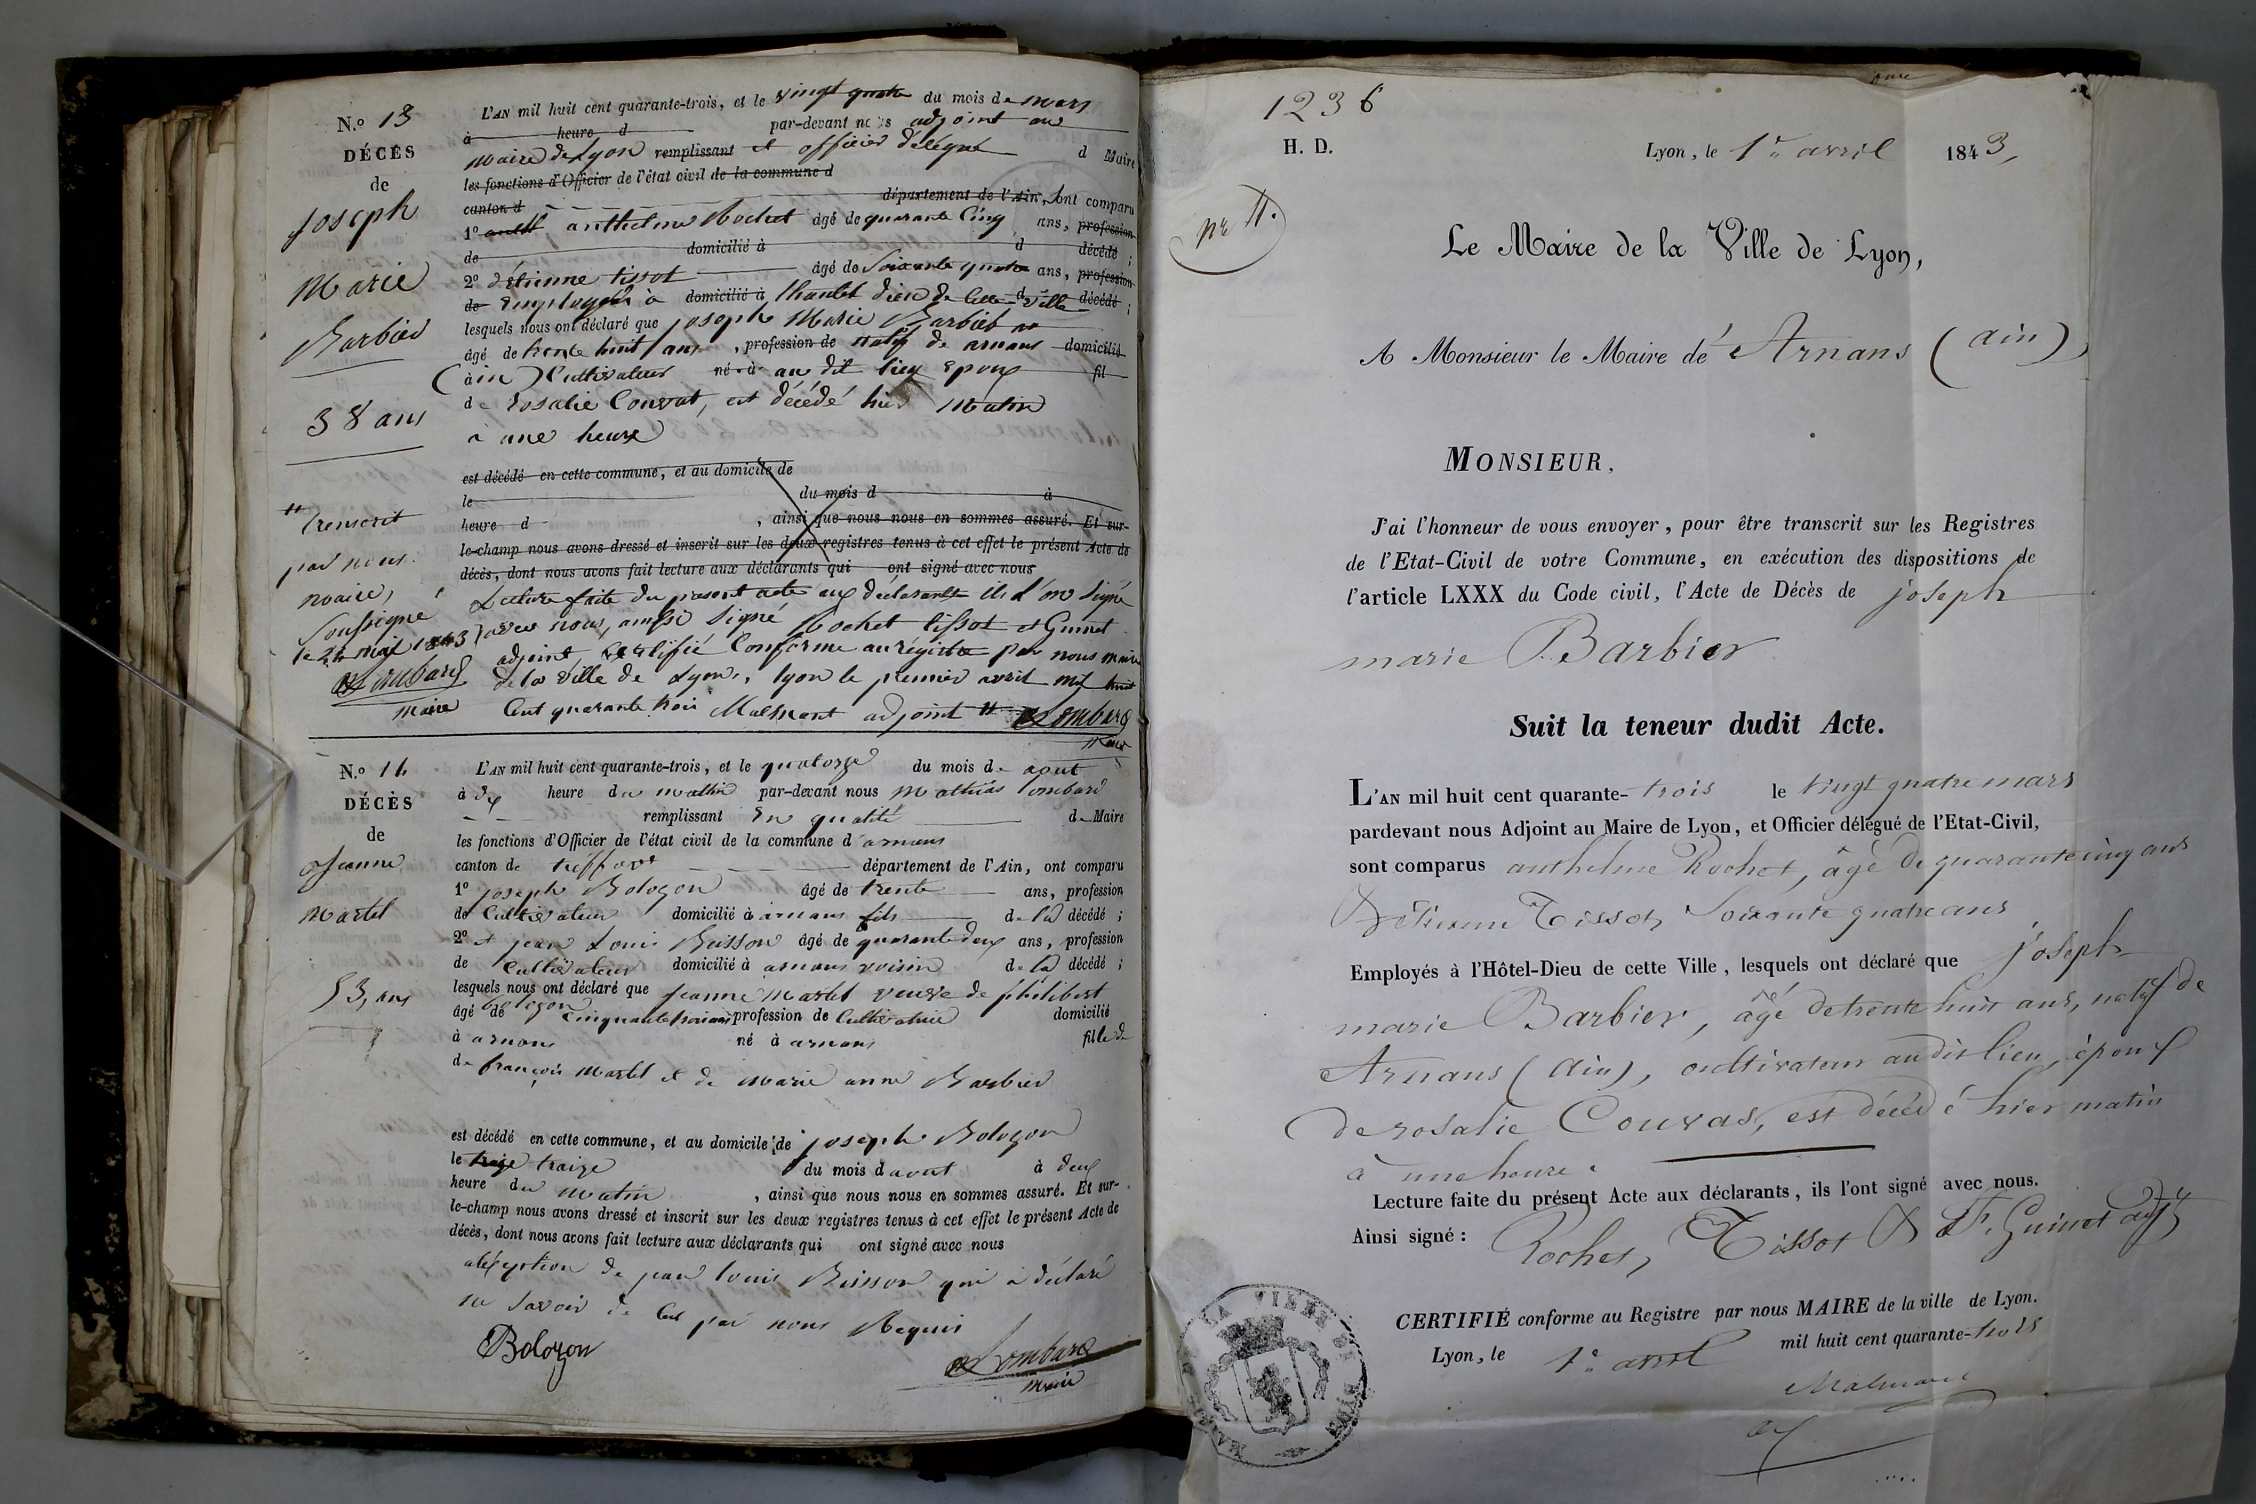 N.o 13
DÉCÈS
de
Joseph
Marie
Barbier
38 ans
transcrit
par nous
maire,
Soussigné
le 24 mai 1843
Lombard
maire
L'AN mil huit cent quarante-trois, et le vingt quatre du mois de mars
à heure d par-devant nous adjoint au
maire de Lyon remplissant et officier délégué d Maire
les fonctions d'Officier de l'état civil de la commune d
canton d département de l'Ain, sont comparu
1o anthelme Rochet âgé de quarante Cinq ans, profession
de domicilié à d décédé ;
2o d'étienne tissot âgé de Soixante quatre ans, profession
de Employés à domicilié à l'hautel dieu de cette ville d décédé ;
lesquels nous ont déclaré que joseph Marie Barbier
âgé de trente huit ans, profession de natif de arnans domicilié
(ain) Cultivateur né à au dit lieu Epoux fil
de rosalie Couvat, est décédé hier Matin
à une heure
est décédé en cette commune, et au domicile de
le du mois d à
heure d , ainsi que nous nous en sommes assuré. Et sur-
le-champ nous avons dressé et inscrit sur les deux registres tenus à cet effet le présent Acte de
décès, dont nous avons fait lecture aux déclarants qui ont signé avec nous
Lecture faite du present acte aux déclarants ils l'on Signé
avec nous, ainsi Signé Rochet tissot et Guinet
adjoint Certifié Conforme au régistre par nous maire
de la ville de Lyon, lyon le premier avril mil huit
Cent quarante trois Malmont adjoint Lombard
Maire
N.o 14
DÉCÈS
de
Jeanne
Martel
53, ans
L'AN mil huit cent quarante-trois, et le quatorze du mois de aout
à dix heure du matin par-devant nous Mathias Lombard
remplissant En qualité de Maire
les fonctions d'Officier de l'état civil de la commune d'arnans
canton de treffort département de l'Ain, ont comparu
1o joseph Bologon âgé de trente ans, profession
de Cultivateur domicilié à arnans fils de la décédé ;
2o et jean Louis Buisson âgé de quarante deux ans, profession
de Cultivateur domicilié à arnans voisin de la décédé ;
lesquels nous ont déclaré que Jeanne Martel veuve de philibert
bologon
âgé de Cinquante trois ans profession de Cultivatrice domicilié
à arnans né à arnans fille de
de françois Martel et de Marie anne Barbier
est décédé en cette commune, et au domicile de joseph Bologon
le traize du mois d'aout à deux
heure du Matin , ainsi que nous nous en sommes assuré. Et sur-
le-champ nous avons dressé et inscrit sur les deux registres tenus à cet effet le présent Acte de
décès, dont nous avons fait lecture aux déclarants qui ont signé avec nous
aléxeption de jean louis Buisson qui à déclaré
ne Savoir de Cet par nous Requis
Bolozon
Lombard
maire
1236
H. D.
Lyon, le 1er avril 1843,
no 11.
Le Maire de la Ville de Lyon,
A Monsieur le Maire de Arnans (ain)
MONSIEUR,
J'ai l'honneur de vous envoyer, pour être transcrit sur les Registres
de l'Etat-Civil de votre Commune, en exécution des dispositions de
l'article LXXX du Code civil, l'Acte de Décès de joseph
marie Barbier
Suit la teneur dudit Acte.
L'AN mil huit cent quarante-trois le vingt quatre mars
pardevant nous Adjoint au Maire de Lyon, et Officier délégué de l'Etat-Civil,
sont comparus anthelme Rochet, âgé de quarante cinq ans
& étienne Tissot, Soixante quatre ans
Employés à l'Hôtel-Dieu de cette Ville, lesquels ont déclaré que joseph
marie Barbier, âgé de trente huit ans, natif de
Arnans (Ain), cultivateur au dit lieu, époux
de rosalie Couvas, est décédé hier matin
à une heure.
Lecture faite du présent Acte aux déclarants, ils l'ont signé avec nous.
Ainsi signé : Rochet, Tissot & F. Guinet adjt
CERTIFIÉ conforme au Registre par nous MAIRE de la ville de Lyon.
Lyon, le 1er avril mil huit cent quarante-trois
Malmont
MAIRIE DE LA VILLE DE LYON